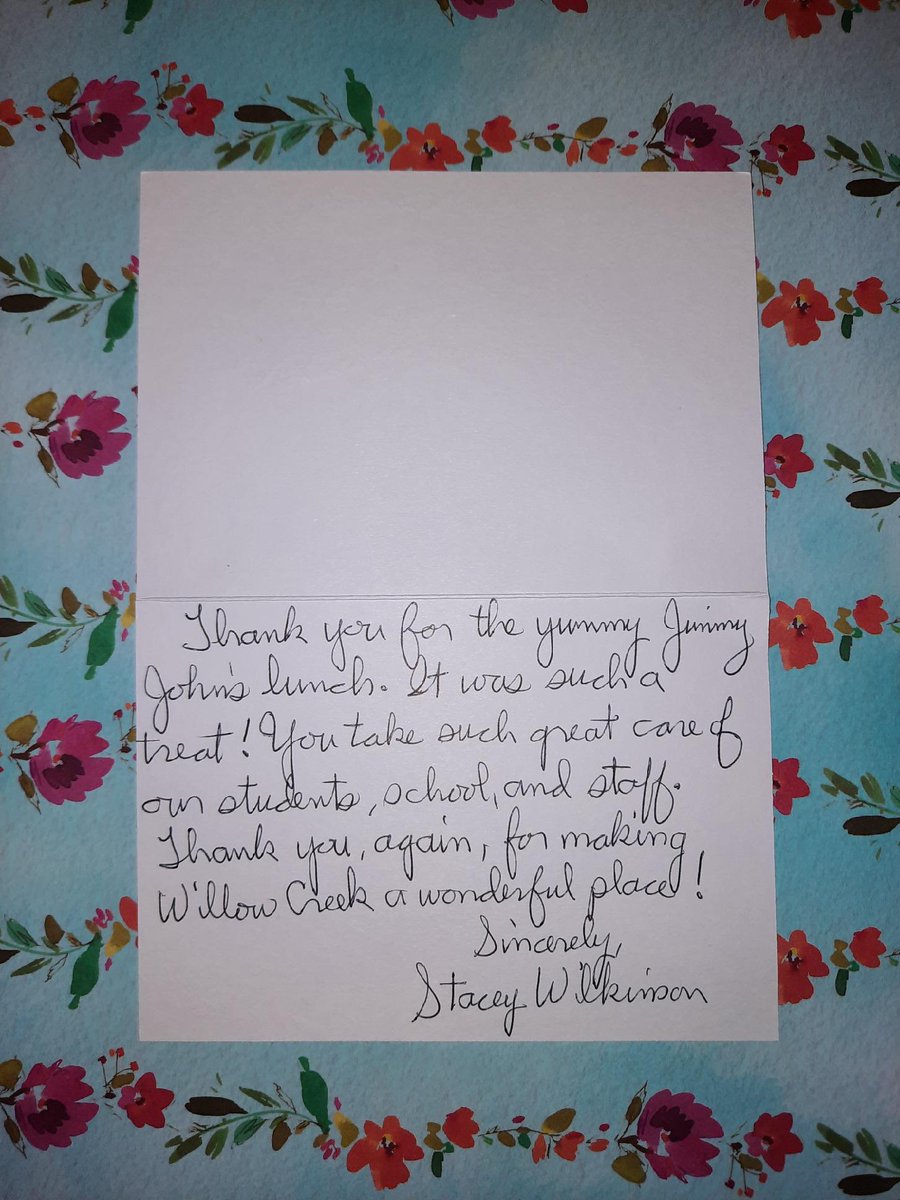 Thank you for the yummy Jimmy
John's lunch. It was such a
treat! You take such great care of
our students, school, and staff.
Thank you, again, for making
Willow Creek a wonderful place!
Sincerely,
Stacey Wilkinson